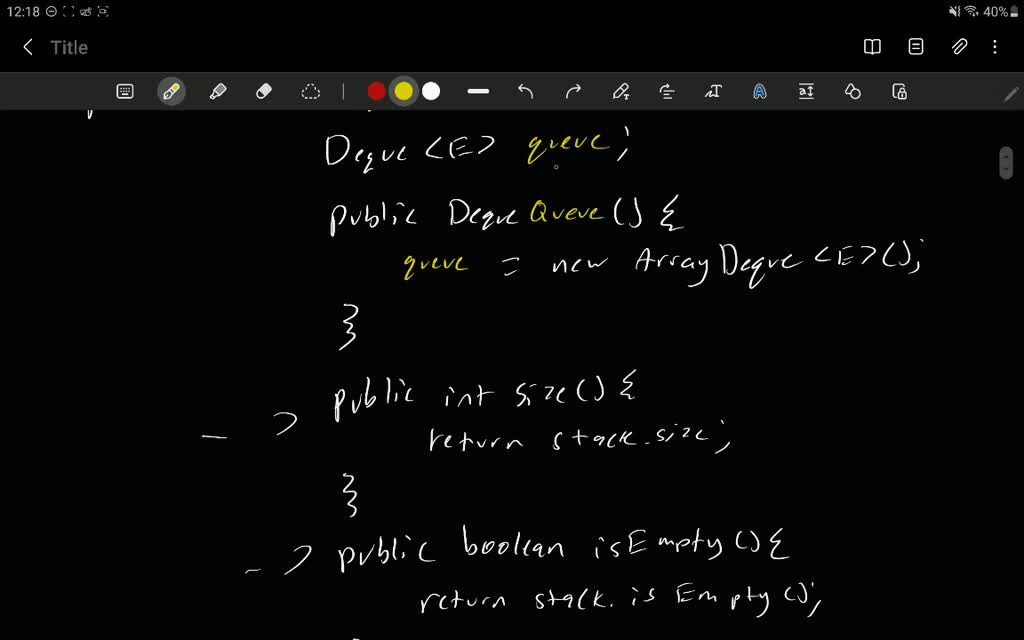 12:18 40%
Title
Deque <E> queue;
public Deque Queue() {
queue = new ArrayDeque <E>();
}
public int size() {
return stack.size;
}
public boolean isEmpty() {
return stack.isEmpty();